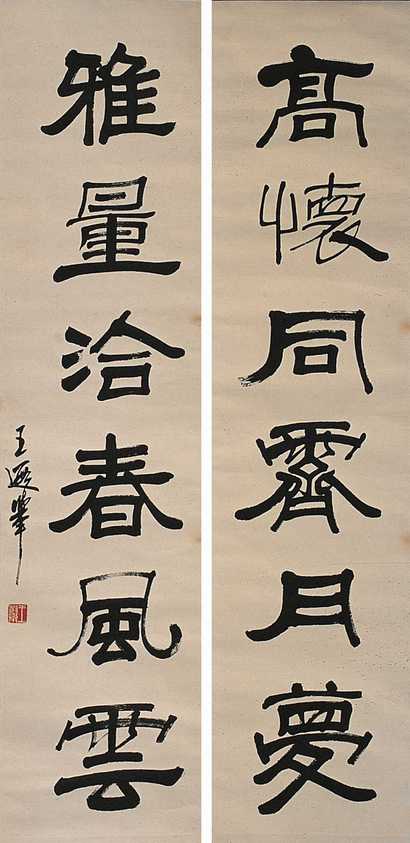 高懷同霽月夢
雅量洽春風雲
王遐舉